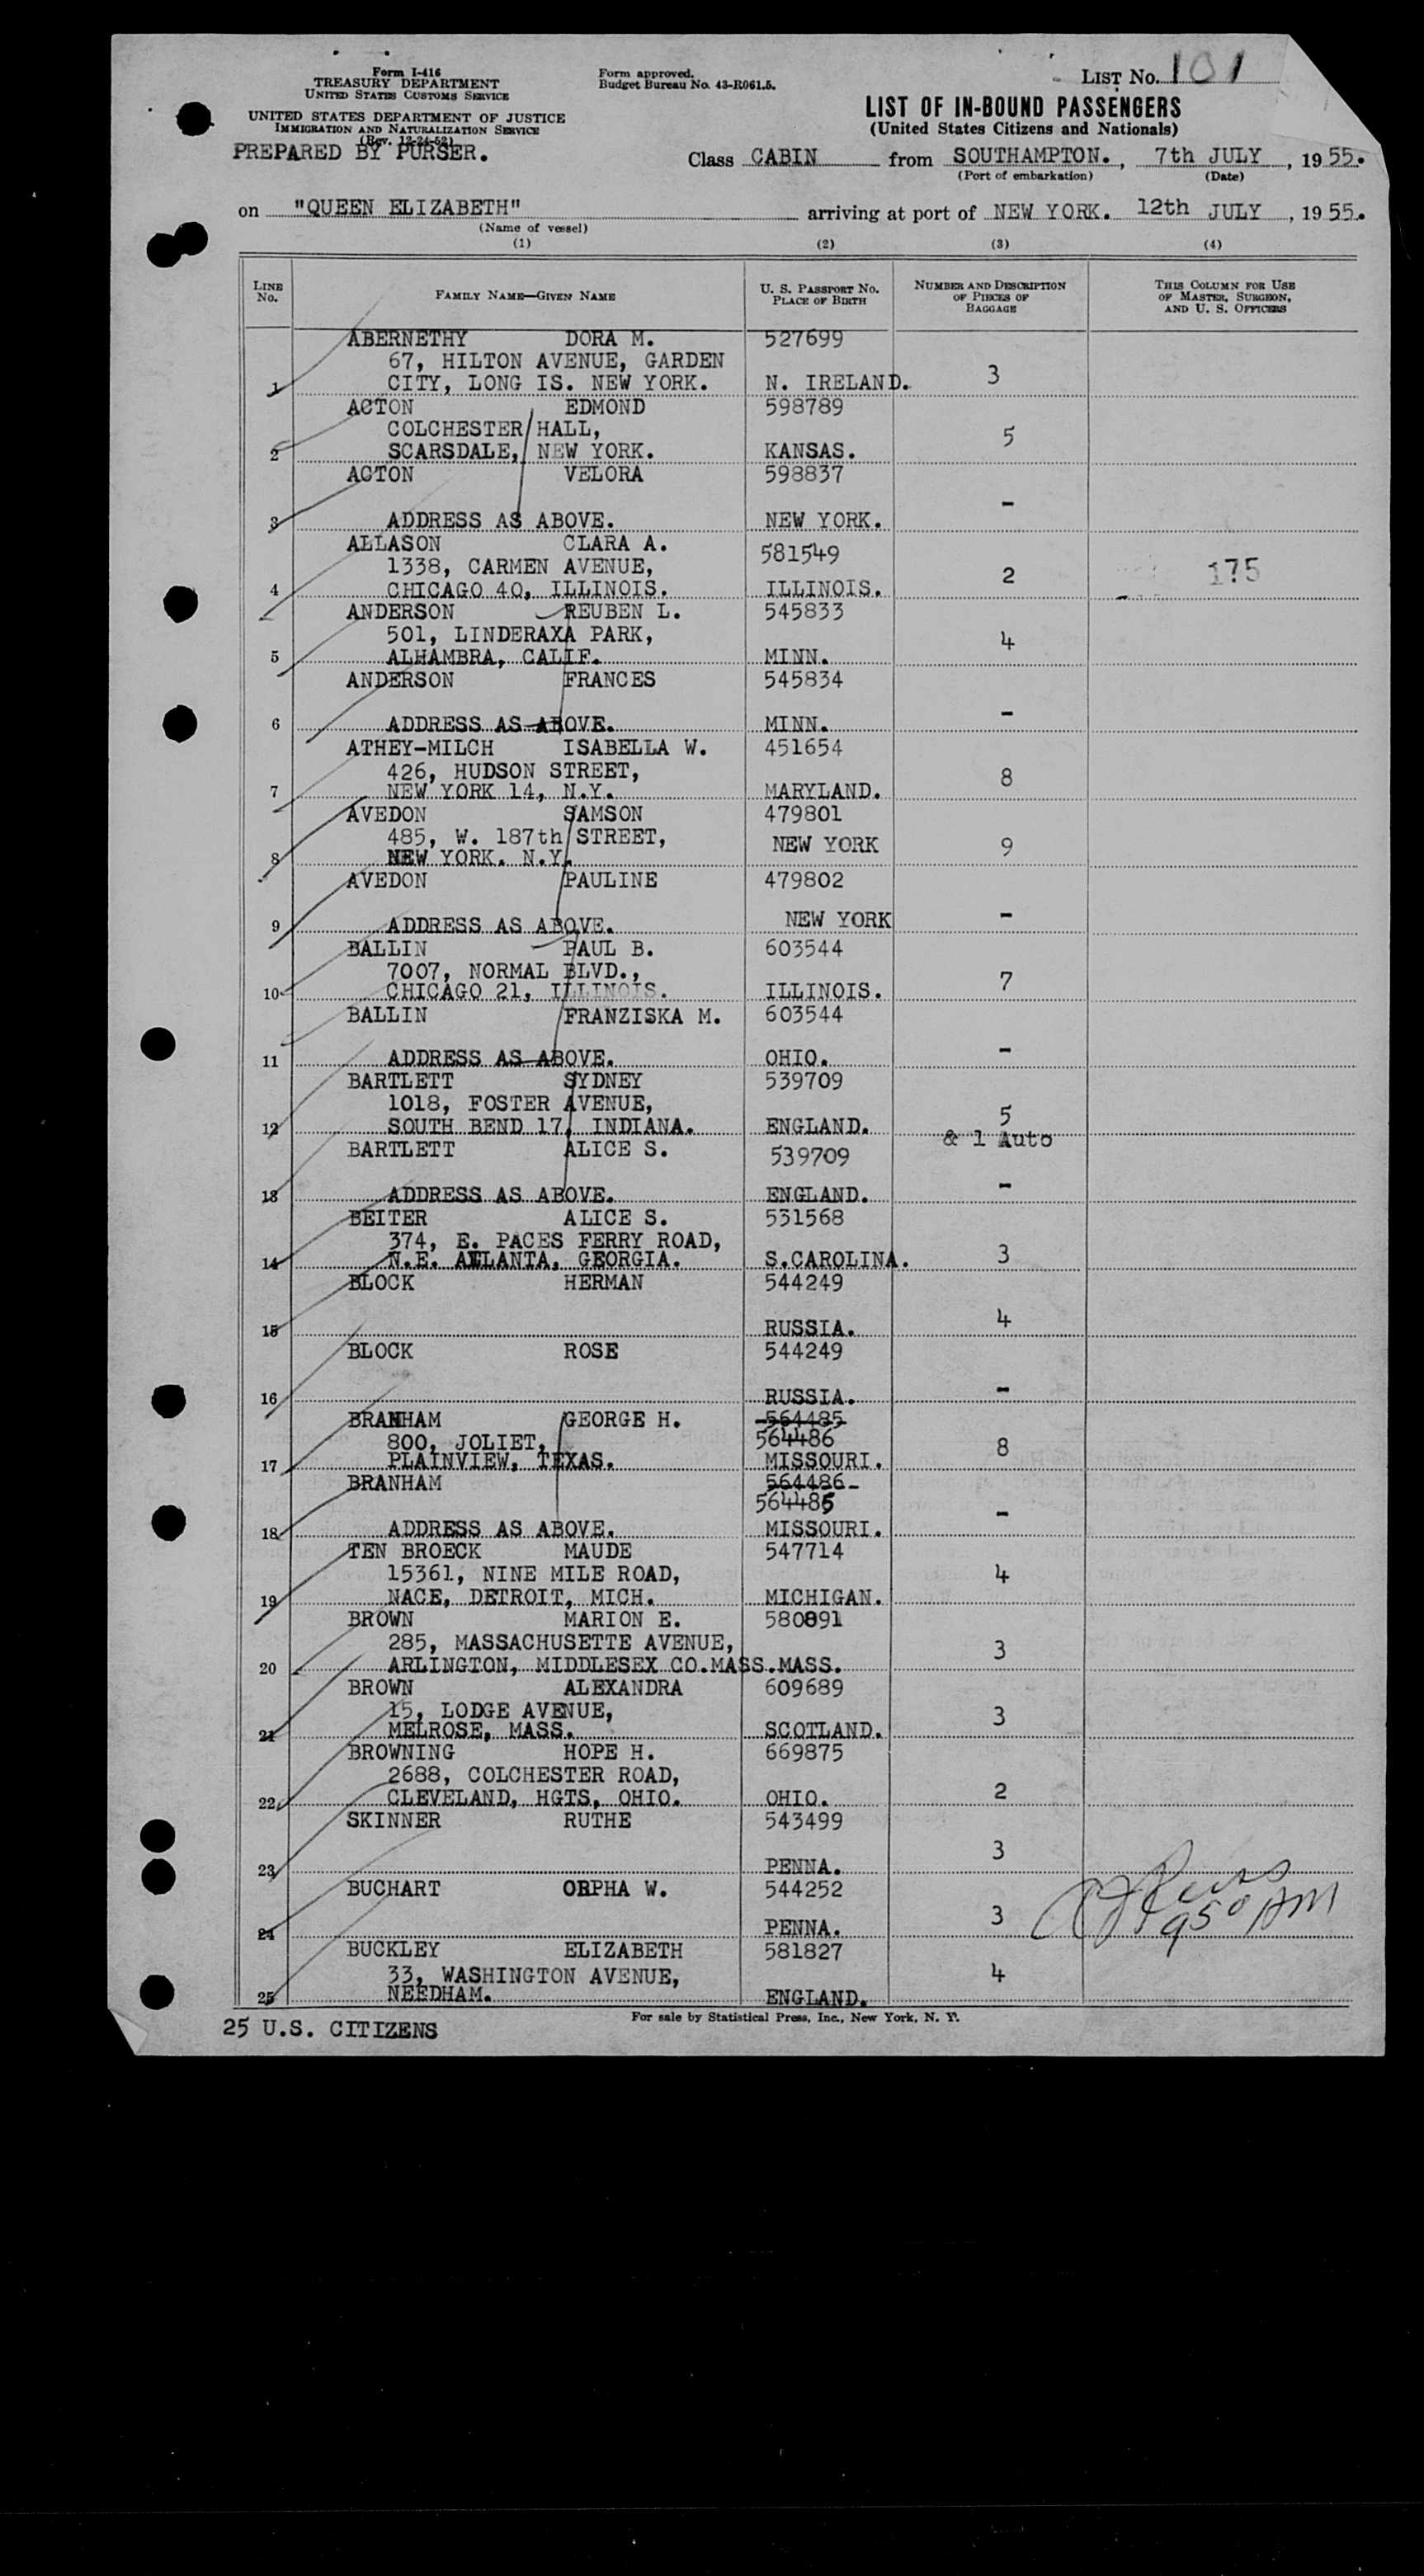 Form I-416
TREASURY DEPARTMENT
UNITED STATES CUSTOMS SERVICE
UNITED STATES DEPARTMENT OF JUSTICE
IMMIGRATION AND NATURALIZATION SERVICE
(Rev. 12-24-52)
PREPARED BY PURSER.
Form approved.
Budget Bureau No. 43-R061.5.
LIST No. 101
LIST OF IN-BOUND PASSENGERS
(United States Citizens and Nationals)
Class CABIN from SOUTHAMPTON. , 7th JULY , 19 55.
(Port of embarkation) (Date)
on "QUEEN ELIZABETH" arriving at port of NEW YORK. 12th JULY , 19 55.
(Name of vessel)
(1) (2) (3) (4)
LINE No. FAMILY NAME—GIVEN NAME U. S. PASSPORT No. PLACE OF BIRTH NUMBER AND DESCRIPTION OF PIECES OF BAGGAGE THIS COLUMN FOR USE OF MASTER, SURGEON, AND U. S. OFFICERS
ABERNETHY DORA M. 527699
67, HILTON AVENUE, GARDEN
1 CITY, LONG IS. NEW YORK. N. IRELAND. 3
ACTON EDMOND 598789
COLCHESTER HALL,
2 SCARSDALE, NEW YORK. KANSAS. 5
ACTON VELORA 598837
3 ADDRESS AS ABOVE. NEW YORK. -
ALLASON CLARA A. 581549
1338, CARMEN AVENUE,
4 CHICAGO 40, ILLINOIS. ILLINOIS. 2 175
ANDERSON REUBEN L. 545833
501, LINDERAXA PARK,
5 ALHAMBRA, CALIF. MINN. 4
ANDERSON FRANCES 545834
6 ADDRESS AS ABOVE. MINN. -
ATHEY-MILCH ISABELLA W. 451654
426, HUDSON STREET,
7 NEW YORK 14, N.Y. MARYLAND. 8
AVEDON SAMSON 479801
485, W. 187th STREET, NEW YORK
8 NEW YORK. N.Y. 9
AVEDON PAULINE 479802
9 ADDRESS AS ABOVE. NEW YORK -
BALLIN PAUL B. 603544
7007, NORMAL BLVD.,
10 CHICAGO 21, ILLINOIS. ILLINOIS. 7
BALLIN FRANZISKA M. 603544
11 ADDRESS AS ABOVE. OHIO. -
BARTLETT SYDNEY 539709
1018, FOSTER AVENUE,
12 SOUTH BEND 17, INDIANA. ENGLAND. 5
& 1 Auto
BARTLETT ALICE S. 539709
13 ADDRESS AS ABOVE. ENGLAND. -
BEITER ALICE S. 531568
374, E. PACES FERRY ROAD,
14 N.E. ATLANTA, GEORGIA. S.CAROLINA. 3
BLOCK HERMAN 544249
15 RUSSIA. 4
BLOCK ROSE 544249
16 RUSSIA. -
BRANHAM GEORGE H. 564485
800, JOLIET, 564486
17 PLAINVIEW, TEXAS. MISSOURI. 8
BRANHAM 564486
564485
18 ADDRESS AS ABOVE. MISSOURI. -
TEN BROECK MAUDE 547714
15361, NINE MILE ROAD,
19 NACE, DETROIT, MICH. MICHIGAN. 4
BROWN MARION E. 580891
285, MASSACHUSETTE AVENUE,
20 ARLINGTON, MIDDLESEX CO.MASS. MASS. 3
BROWN ALEXANDRA 609689
15, LODGE AVENUE,
21 MELROSE, MASS. SCOTLAND. 3
BROWNING HOPE H. 669875
2688, COLCHESTER ROAD,
22 CLEVELAND, HGTS, OHIO. OHIO. 2
SKINNER RUTHE 543499
23 PENNA. 3
BUCHART ORPHA W. 544252
24 PENNA. 3 950 AM
BUCKLEY ELIZABETH 581827
33, WASHINGTON AVENUE,
25 NEEDHAM. ENGLAND. 4
For sale by Statistical Press, Inc., New York, N. Y.
25 U.S. CITIZENS